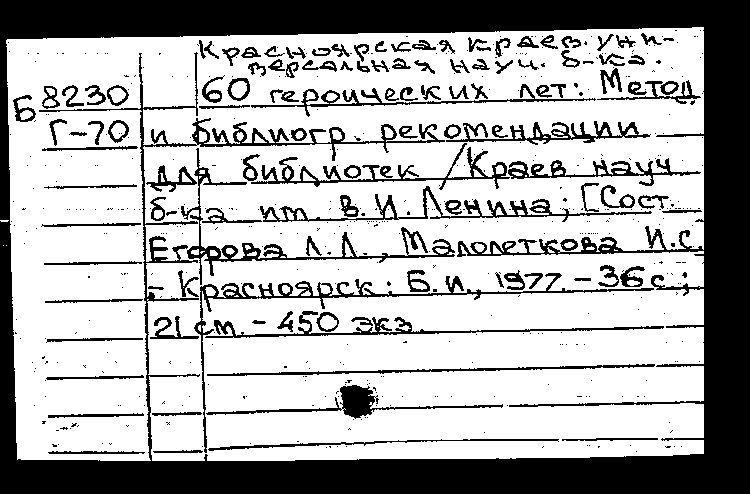 Красноярская краев. уни-
версальная науч. б-ка.
Б 8230 60 героических лет: Метод
Г-70 и библиогр. рекомендации
для библиотек / Краев науч
б-ка им. В. И. Ленина; [Сост.
Егорова Л. Л., Малолеткова И. С.
- Красноярск: Б. и., 1977. - 36 с.;
21 см. - 450 экз.